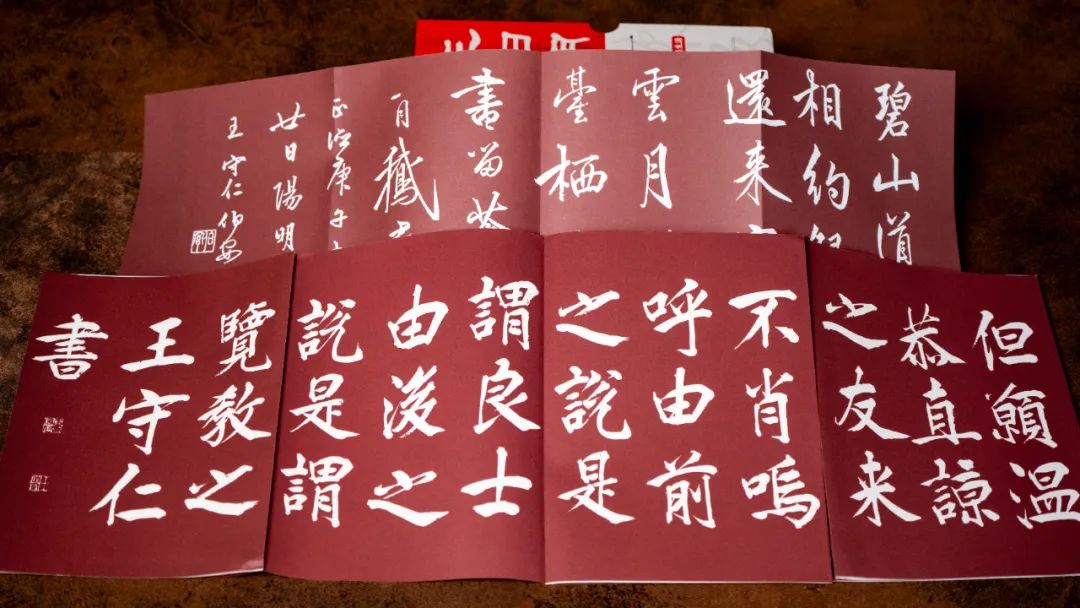 碧山道
相約
還来
雲月
臺栖
書留
鵝
正德庚午
廿日陽明
王守仁伯安
但願温
恭直諒
之友来
不肖嗚
呼由前
之説是
謂良士
由後之
説是謂
覽教之
王守仁
書